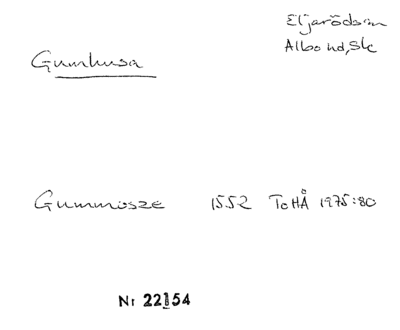 Eljarödssn
Albo hd, Sk
Gumhusa
Gummosze 1552 ToHÅ 1975:80
Nr 22154